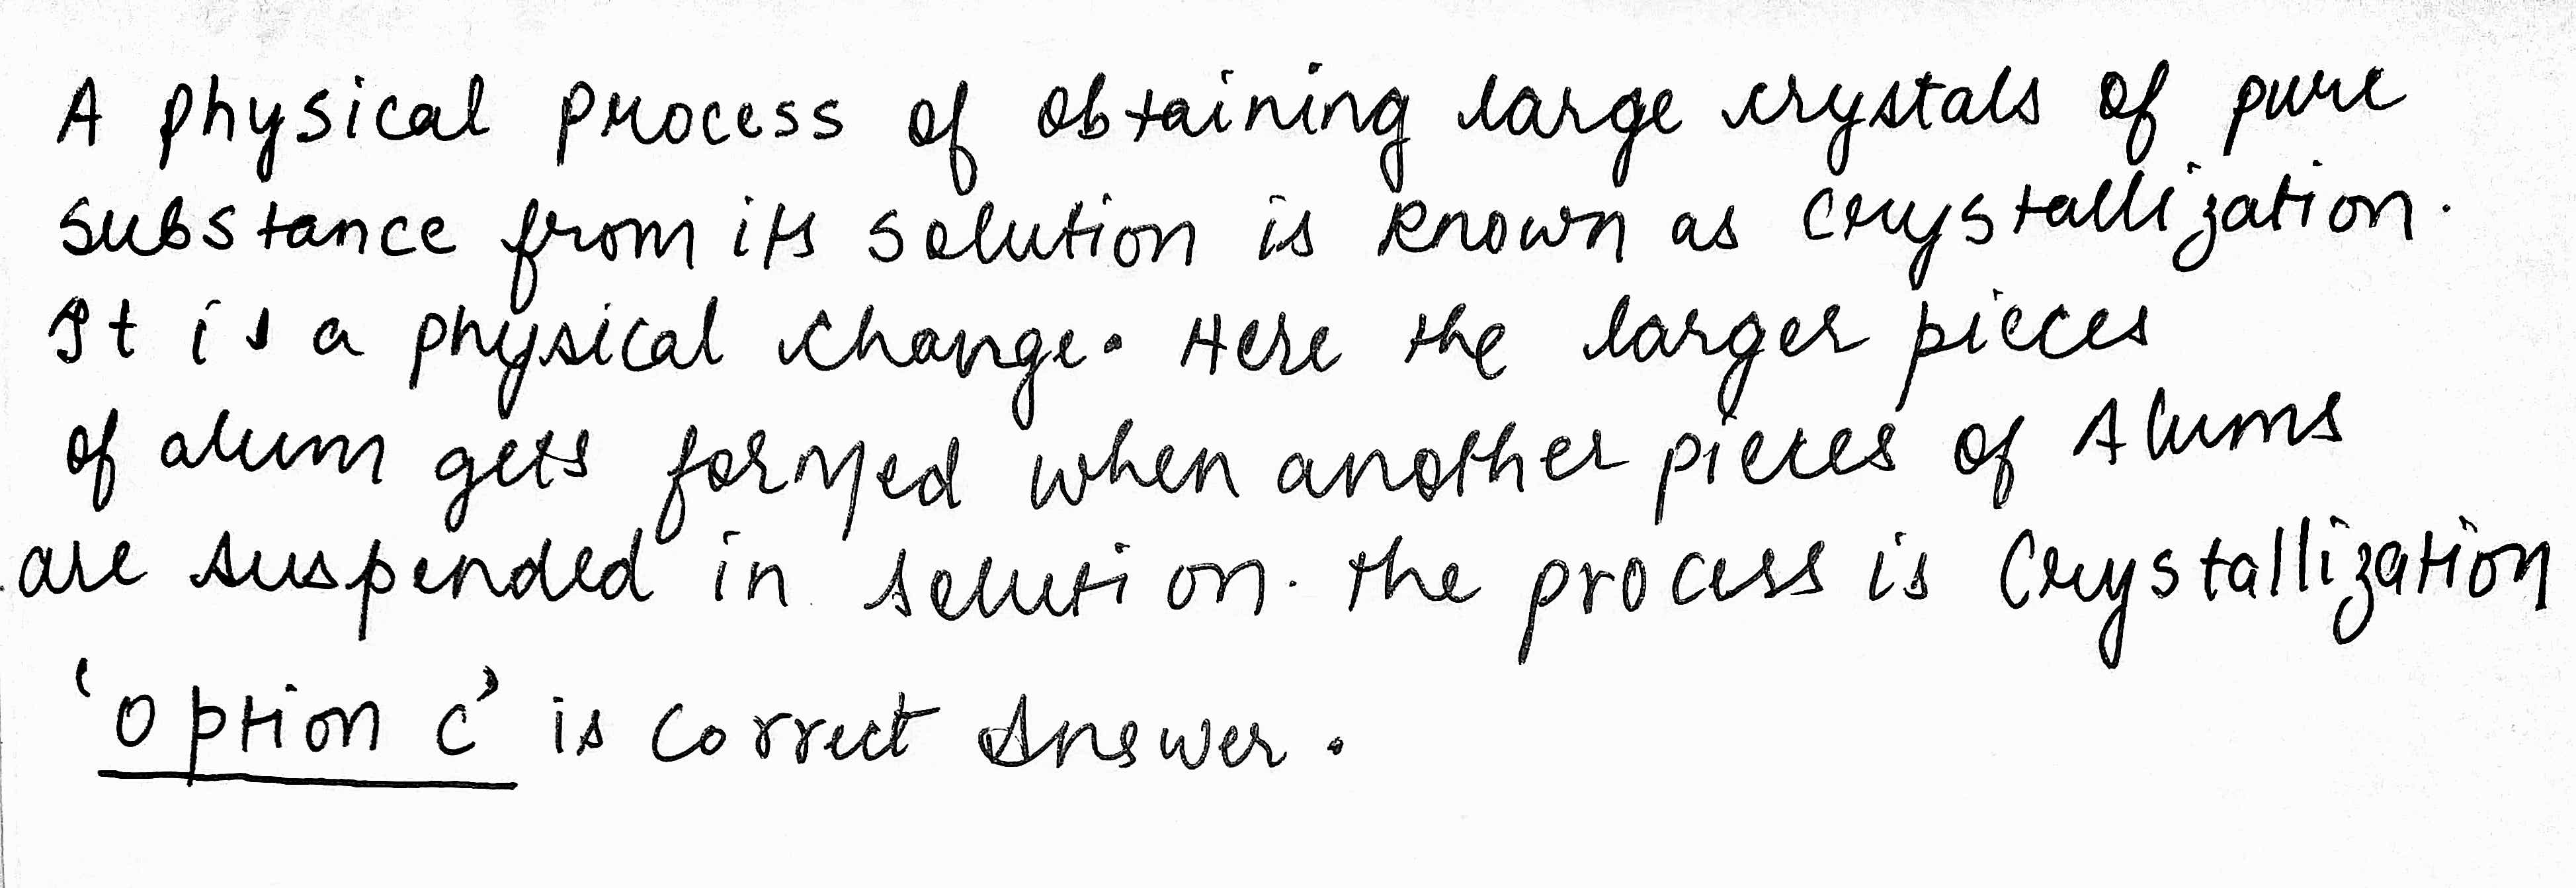 A physical process of obtaining large crystals of pure
substance from its solution is known as crystallization.
It is a physical change. Here the larger pieces
of alum gets formed when another pieces of Alums
are suspended in solution. the process is Crystallization
'Option C' is correct Answer.